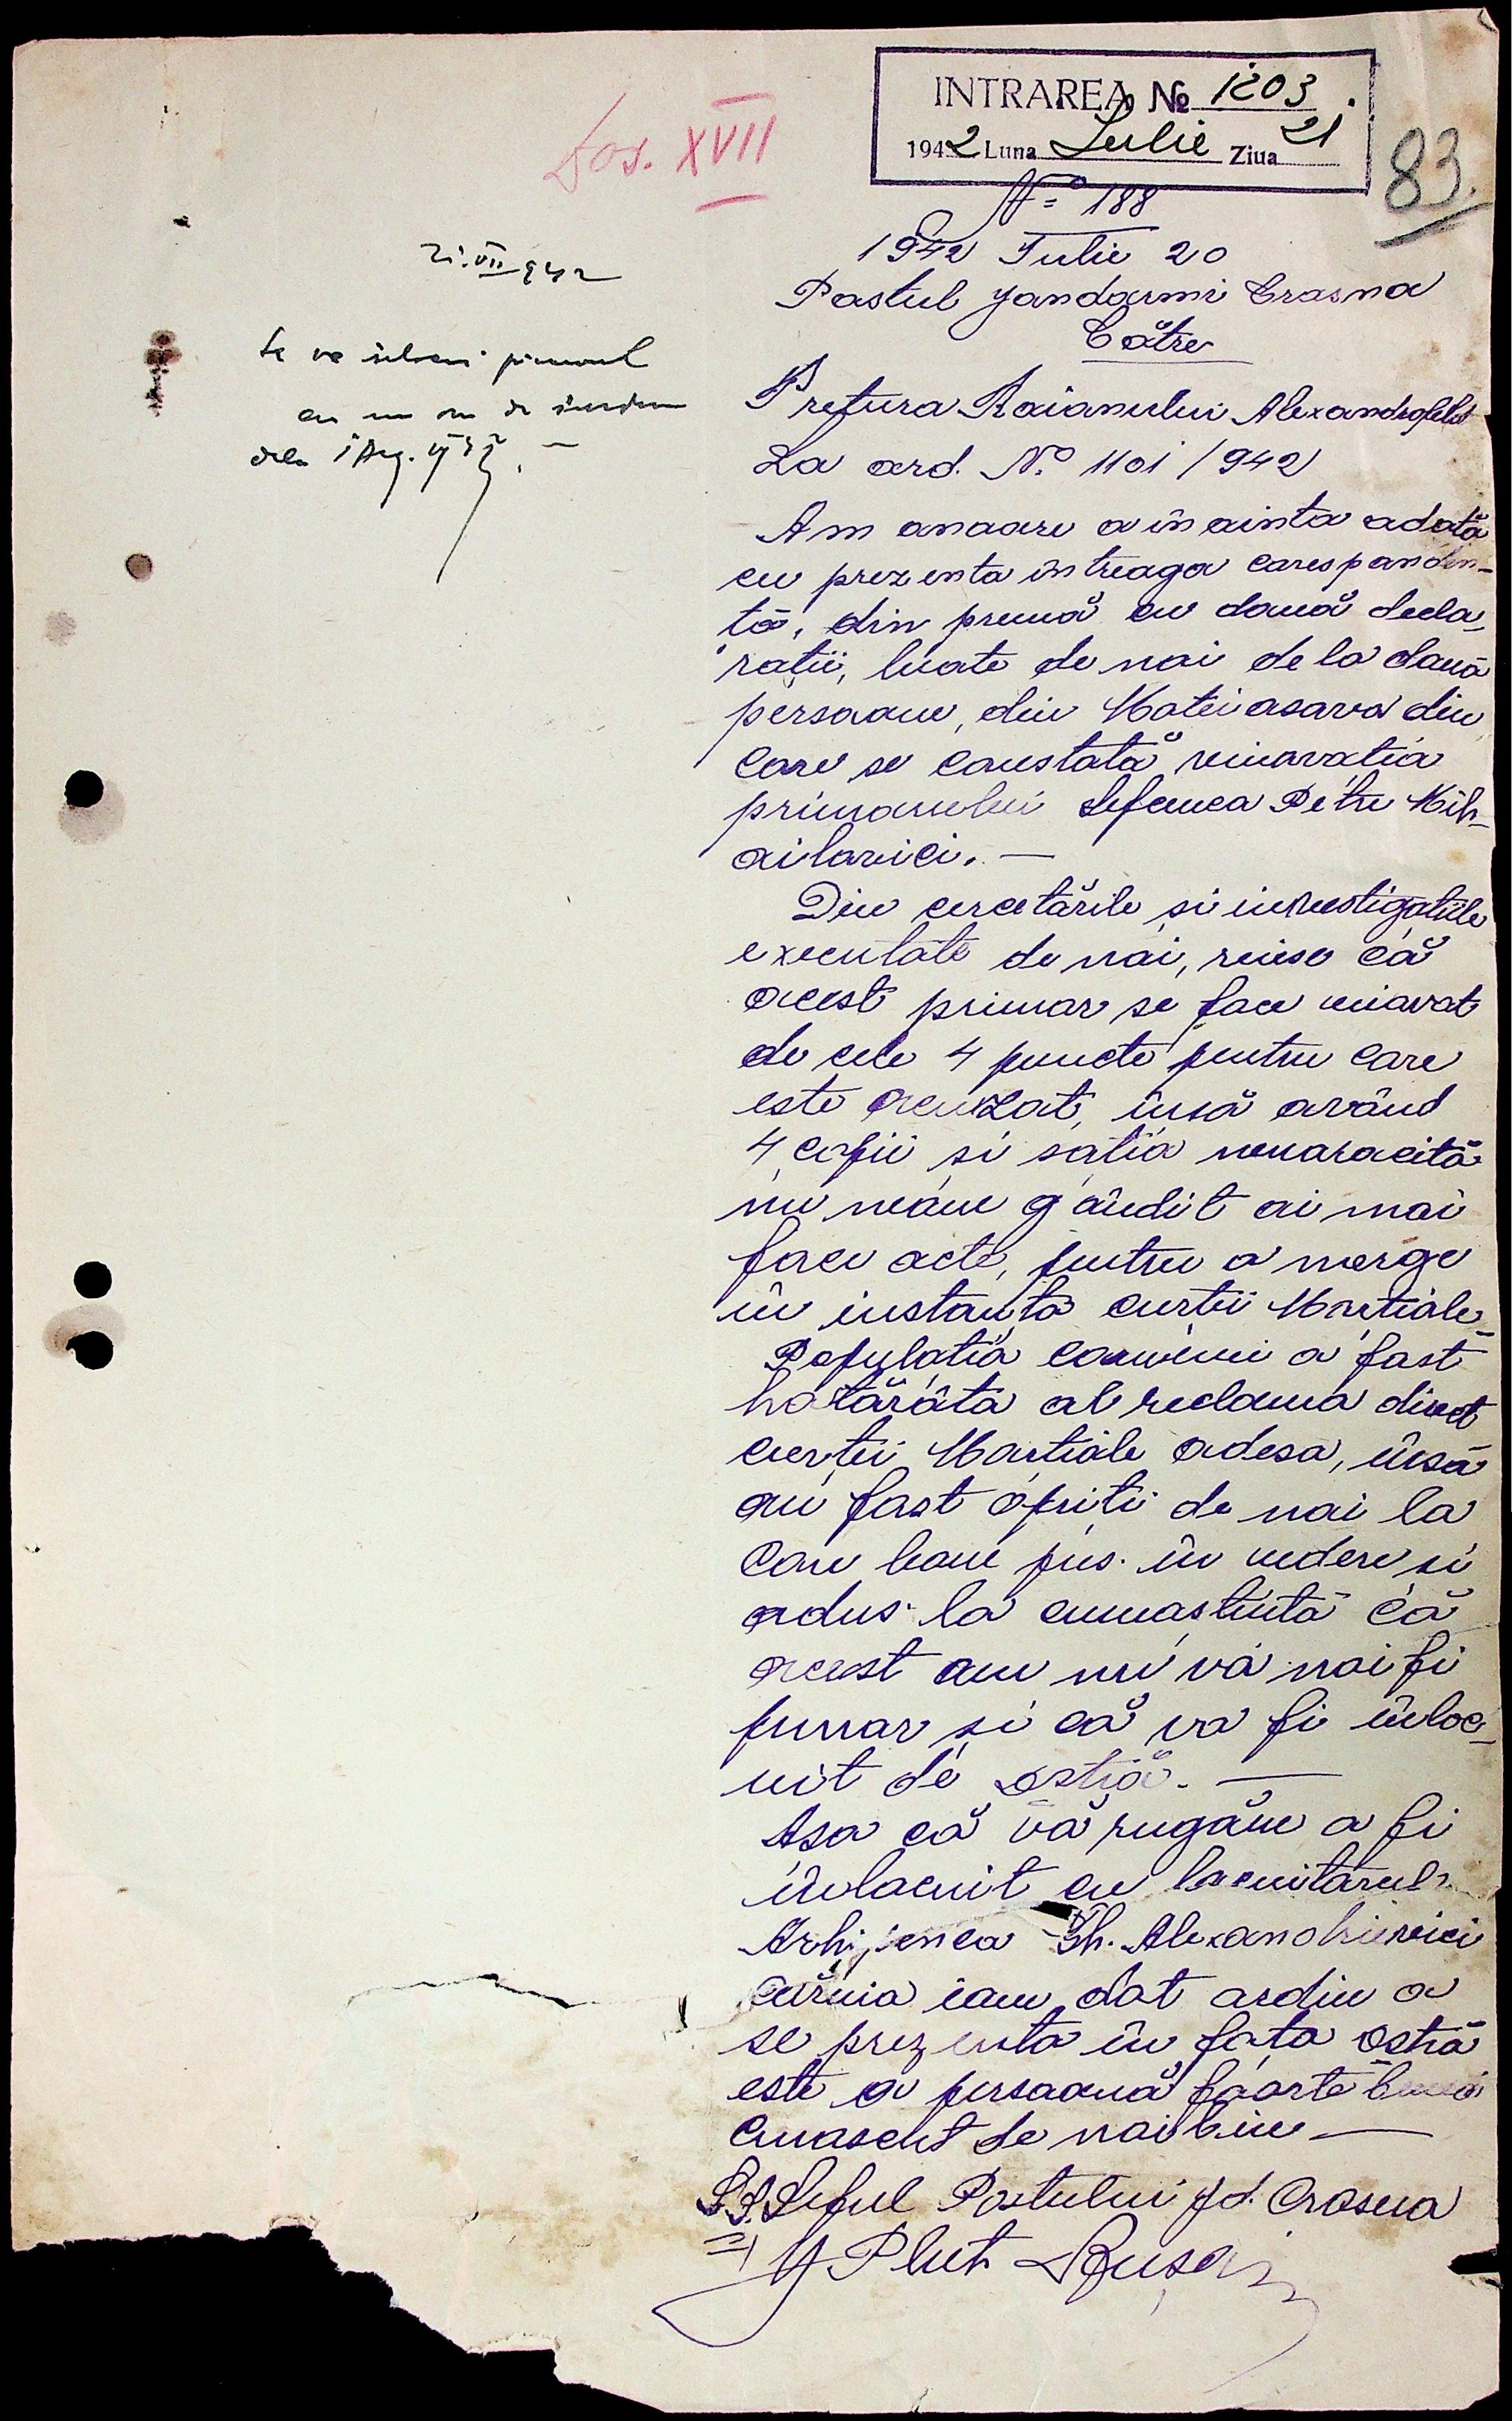 INTRAREA № 1203
1942 Luna Iulie Ziua 21
83.
Dos. XVII
No 188
1942 Iulie 20
Postul jandarmi Crasna
Către
Pretura Raionului Alexandrofeld
La ord. No. 1101/942
21.VII 942
Se va primarul
dela 1 Aug. 942. —
Am onoare a înainta odată
cu prezenta întreaga coresponden-
tă, din preună cu două decla-
ratii, luate de noi de la două
persoane, din Mateiasova din
care se constată vinovatia
primarului Petru Mih-
ailovici. —
Din cercetările si investigatiile
executate de noi, reiese că
acest primar se face vinovat
de cele 4 puncte pentru care
este acuzat, însă având
4 copii si sotia nenorocită
nu neam gândit ai mai
face acte, pentru a merge
în instanta curtii Martiale
Populatia comunei a fost
hotărâtă al reclama direct
curtii Martiale Odesa, însă
au fost opriti de noi la
care leam pus în vedere si
adus la cunnostintă că
acest om nu va mai fi
primar si că va fi înloc-
uit de ostră. —
Asa că vă rugăm a fi
înlocuit cu locuitorul
Arhipenco Gh. Alexandrievici
căruia iam dat ordin a
se prezenta în fata ostră
este o persoană foarte bună
cunoscut de noi bine —
Seful Postului jd. Crasna
Plut